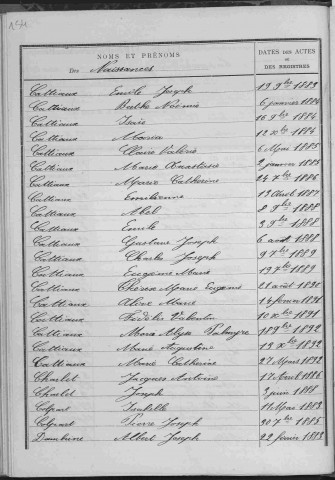 NOMS ET PRÉNOMS
Des Naissances
DATES DES ACTES
et
DES REGISTRES
Catteaux Emile Joseph 19 9bre 1883
Cattiaux Berthe Noémie 6 janvier 1884
Cattiaux 16 9bre 1884
Cattiaux Maria 12 Xbre 1884
Cattiaux Claire Valérie 6 Mai 1885
Cattiaux Marie 2 janvier 1885
Cattiaux Marie Catherine 24 7bre 1886
Cattiaux Emilienne 13 Août 1887
Cattiaux Abel 8 9bre 1888
Catteaux Emile 3 9bre 1888
Catteaux Gustave Joseph 6 août 1888
Cattiaux Charles Joseph 9 7bre 1889
Cattiaux Eugénie Marie 19 7bre 1889
Cattiaux Thérèse Marie Eugénie 21 août 1890
Cattiaux Marie 14 février 1891
Cattiaux Fidèle Valentin 10 Xbre 1891
Cattiaux 18 9bre 1892
Cattiaux Marie Augustine 19 Xbre 1892
Cattiaux Marie Catherine 27 Mars 1892
Charlet Jacques Antoine 17 Avril 1886
Charlet Joseph 3 juin 1888
Colpart 11 Mars 1883
Colpart Pierre Joseph 30 7bre 1885
Albert Joseph 22 février 1883